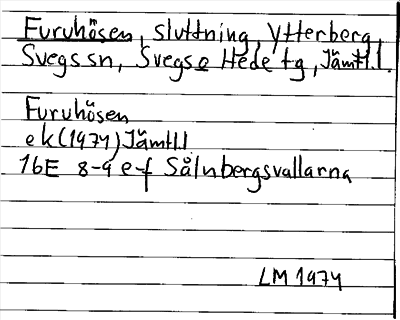 Furuhösen, sluttning, Ytterberg,
Svegs sn, Svegs o Hede tg, Jämtl.l.
Furuhösen
ek (1974) Jämtl.l
16E 8-9 e-f Sålnbergsvallarna
LM 1974